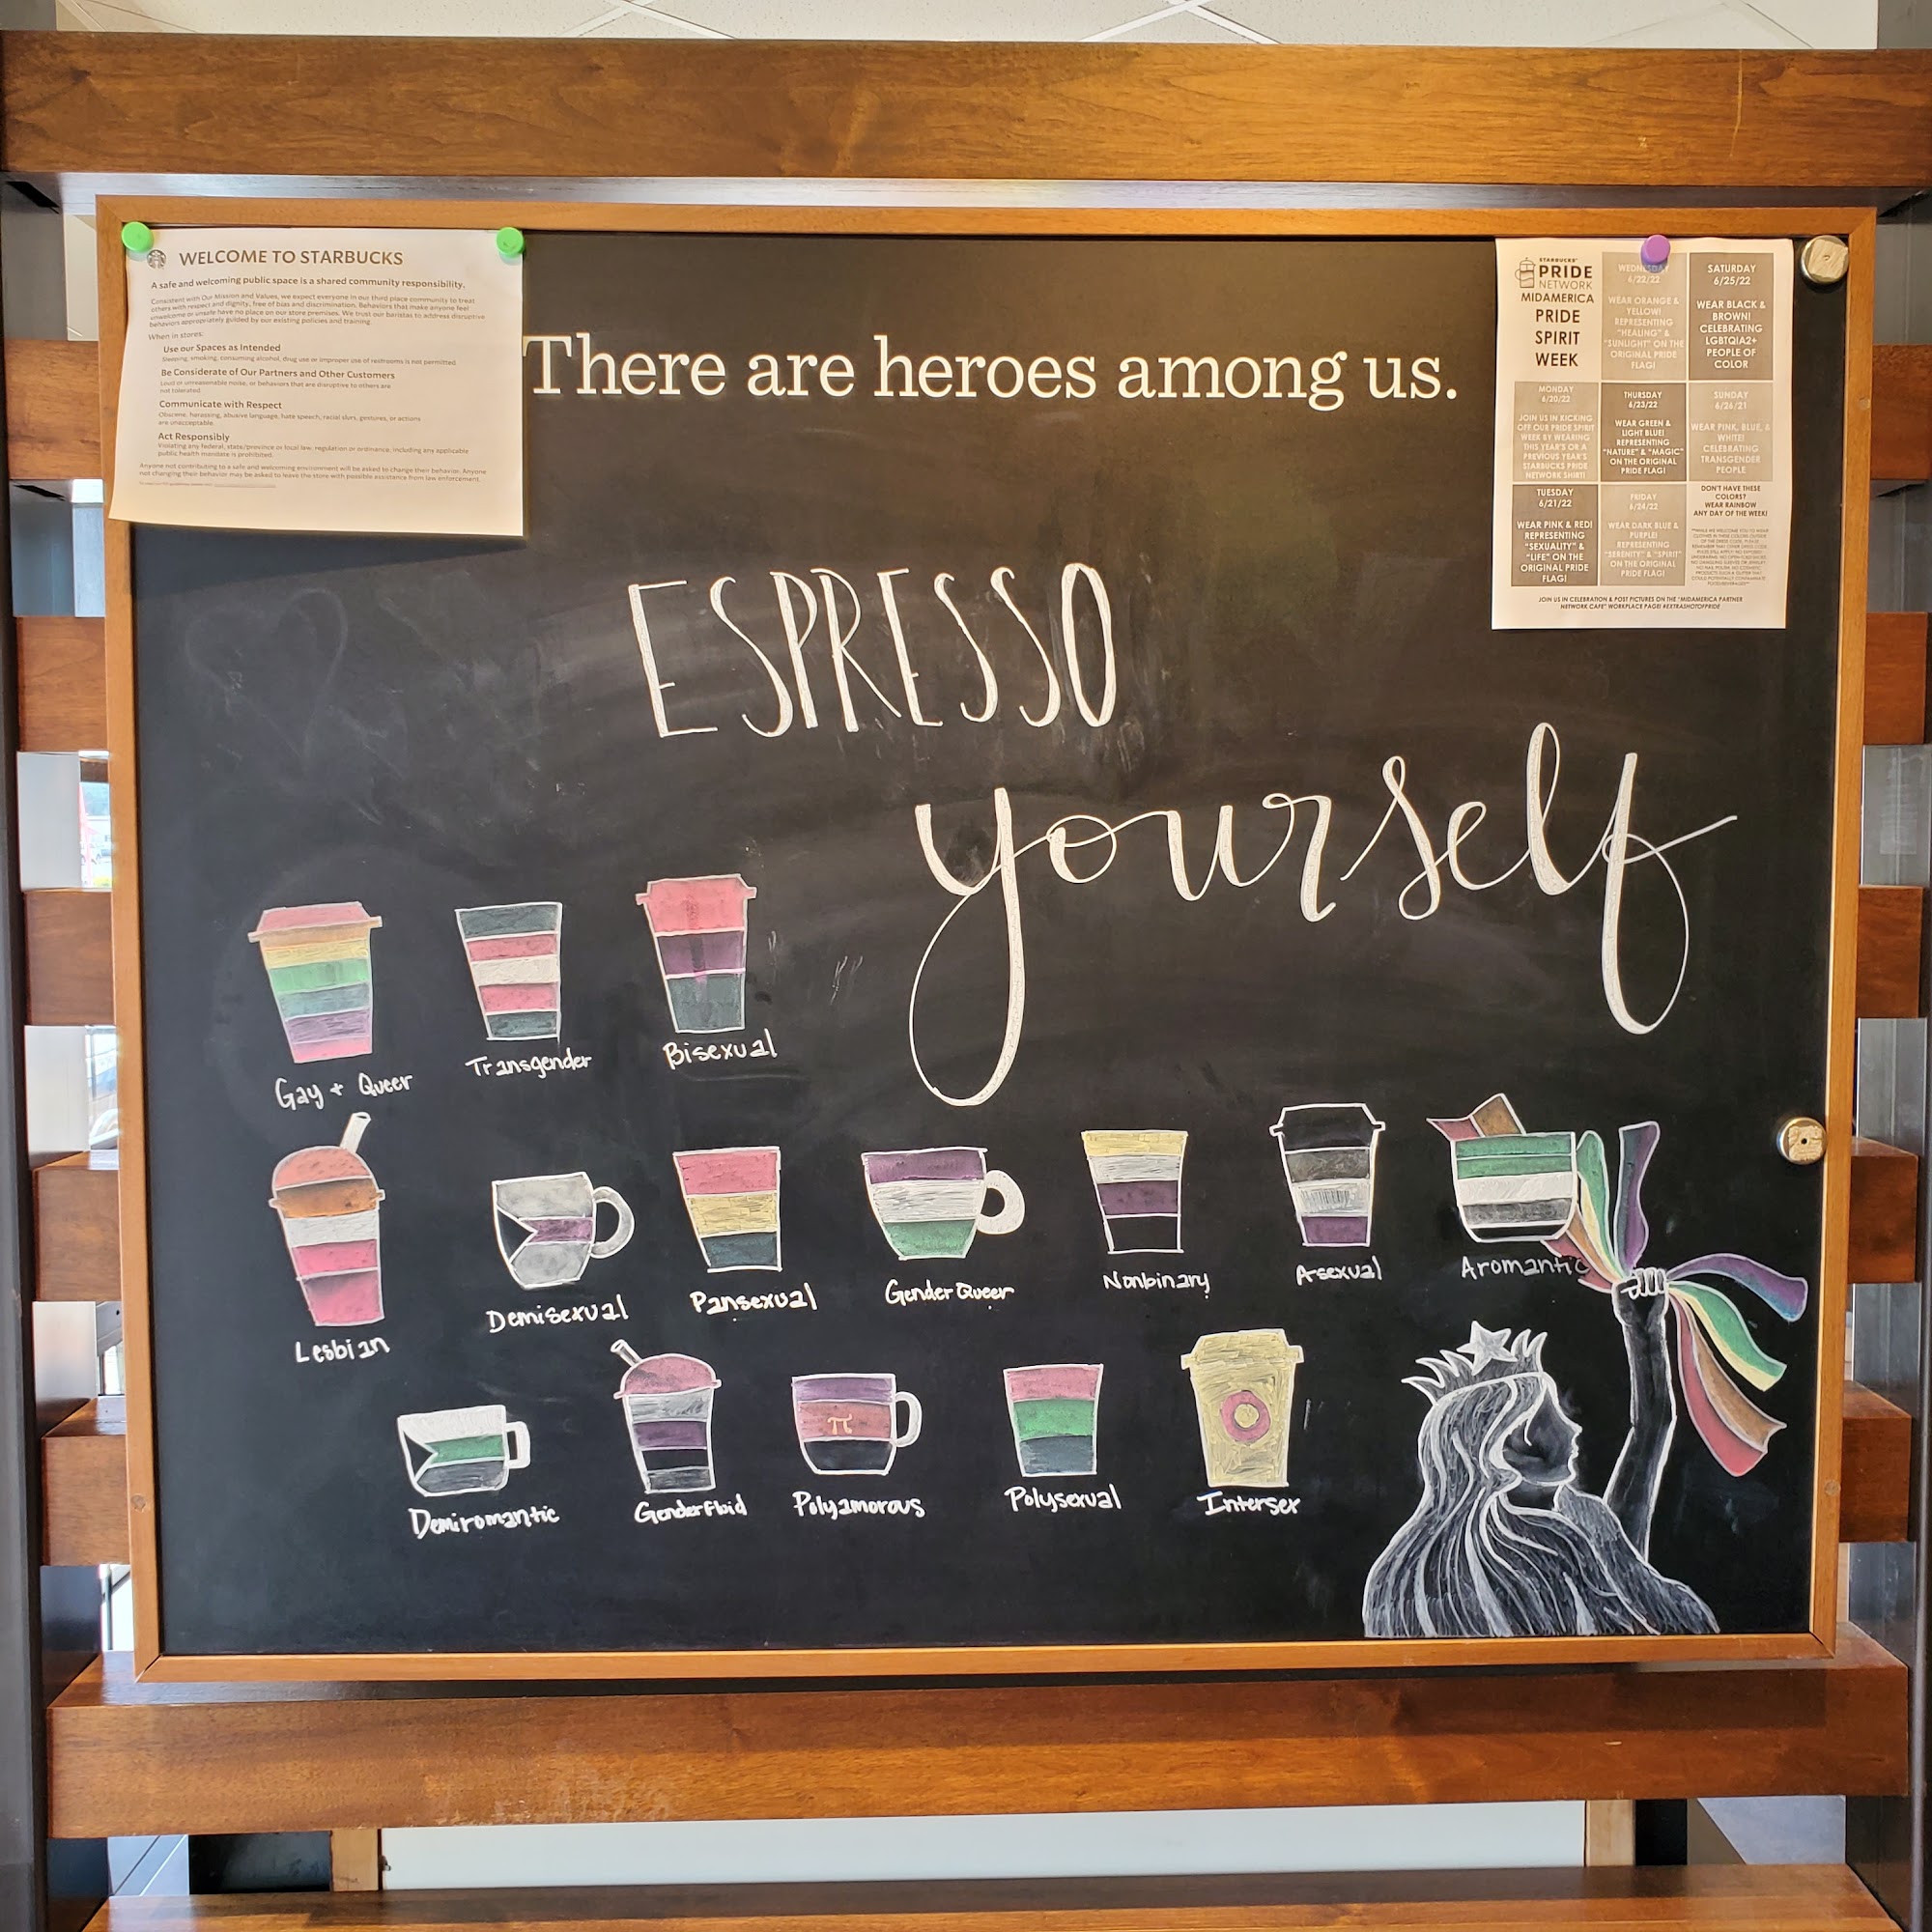 WELCOME TO STARBUCKS
A safe and welcoming public space is a shared community responsibility.
Consistent with Our Mission and Values, we expect everyone in our third place community to treat
others with respect and dignity, free of bias and discrimination. Behaviors that make anyone feel
unwelcome or unsafe have no place on our store premises. We trust our baristas to address disruptive
behaviors appropriately guided by our existing policies and training.
When in stores:
Use our Spaces as Intended
Sleeping, smoking, consuming alcohol, drug use or improper use of restrooms is not permitted.
Be Considerate of Our Partners and Other Customers
Loud or unreasonable noise, or behaviors that are disruptive to others are
not tolerated.
Communicate with Respect
Obscene, harassing, abusive language, hate speech, racial slurs, gestures, or actions
are unacceptable.
Act Responsibly
Violating any federal, state/province or local law, regulation or ordinance, including any applicable
public health mandate is prohibited.
Anyone not contributing to a safe and welcoming environment will be asked to change their behavior. Anyone
not changing their behavior may be asked to leave the store with possible assistance from law enforcement.
There are heroes among us.
STARBUCKS
PRIDE
NETWORK
MIDAMERICA
PRIDE
SPIRIT
WEEK
WEDNESDAY
6/22/22
WEAR ORANGE &
YELLOW!
REPRESENTING
"HEALING" &
"SUNLIGHT" ON THE
ORIGINAL PRIDE
FLAG!
SATURDAY
6/25/22
WEAR BLACK &
BROWN!
CELEBRATING
LGBTQIA2+
PEOPLE OF
COLOR
MONDAY
6/20/22
JOIN US IN KICKING
OFF OUR PRIDE SPIRIT
WEEK BY WEARING
THIS YEAR'S OR A
PREVIOUS YEAR'S
STARBUCKS PRIDE
NETWORK SHIRT!
THURSDAY
6/23/22
WEAR GREEN &
LIGHT BLUE!
REPRESENTING
"NATURE" & "MAGIC"
ON THE ORIGINAL
PRIDE FLAG!
SUNDAY
6/26/21
WEAR PINK, BLUE, &
WHITE!
CELEBRATING
TRANSGENDER
PEOPLE
TUESDAY
6/21/22
WEAR PINK & RED!
REPRESENTING
"SEXUALITY" &
"LIFE" ON THE
ORIGINAL PRIDE
FLAG!
FRIDAY
6/24/22
WEAR DARK BLUE &
PURPLE!
REPRESENTING
"SERENITY" & "SPIRIT"
ON THE ORIGINAL
PRIDE FLAG!
DON'T HAVE THESE
COLORS?
WEAR RAINBOW
ANY DAY OF THE WEEK!
JOIN US IN CELEBRATION & POST PICTURES ON THE "MIDAMERICA PARTNER
NETWORK CAFE" WORKPLACE PAGE! #EXTRASHOTOFPRIDE
ESPRESSO
yourself
Gay + Queer
Transgender
Bisexual
Lesbian
Demisexual
Pansexual
GenderQueer
Nonbinary
Asexual
Aromantic
π
Demiromantic
Genderfluid
Polyamorous
Polysexual
Intersex